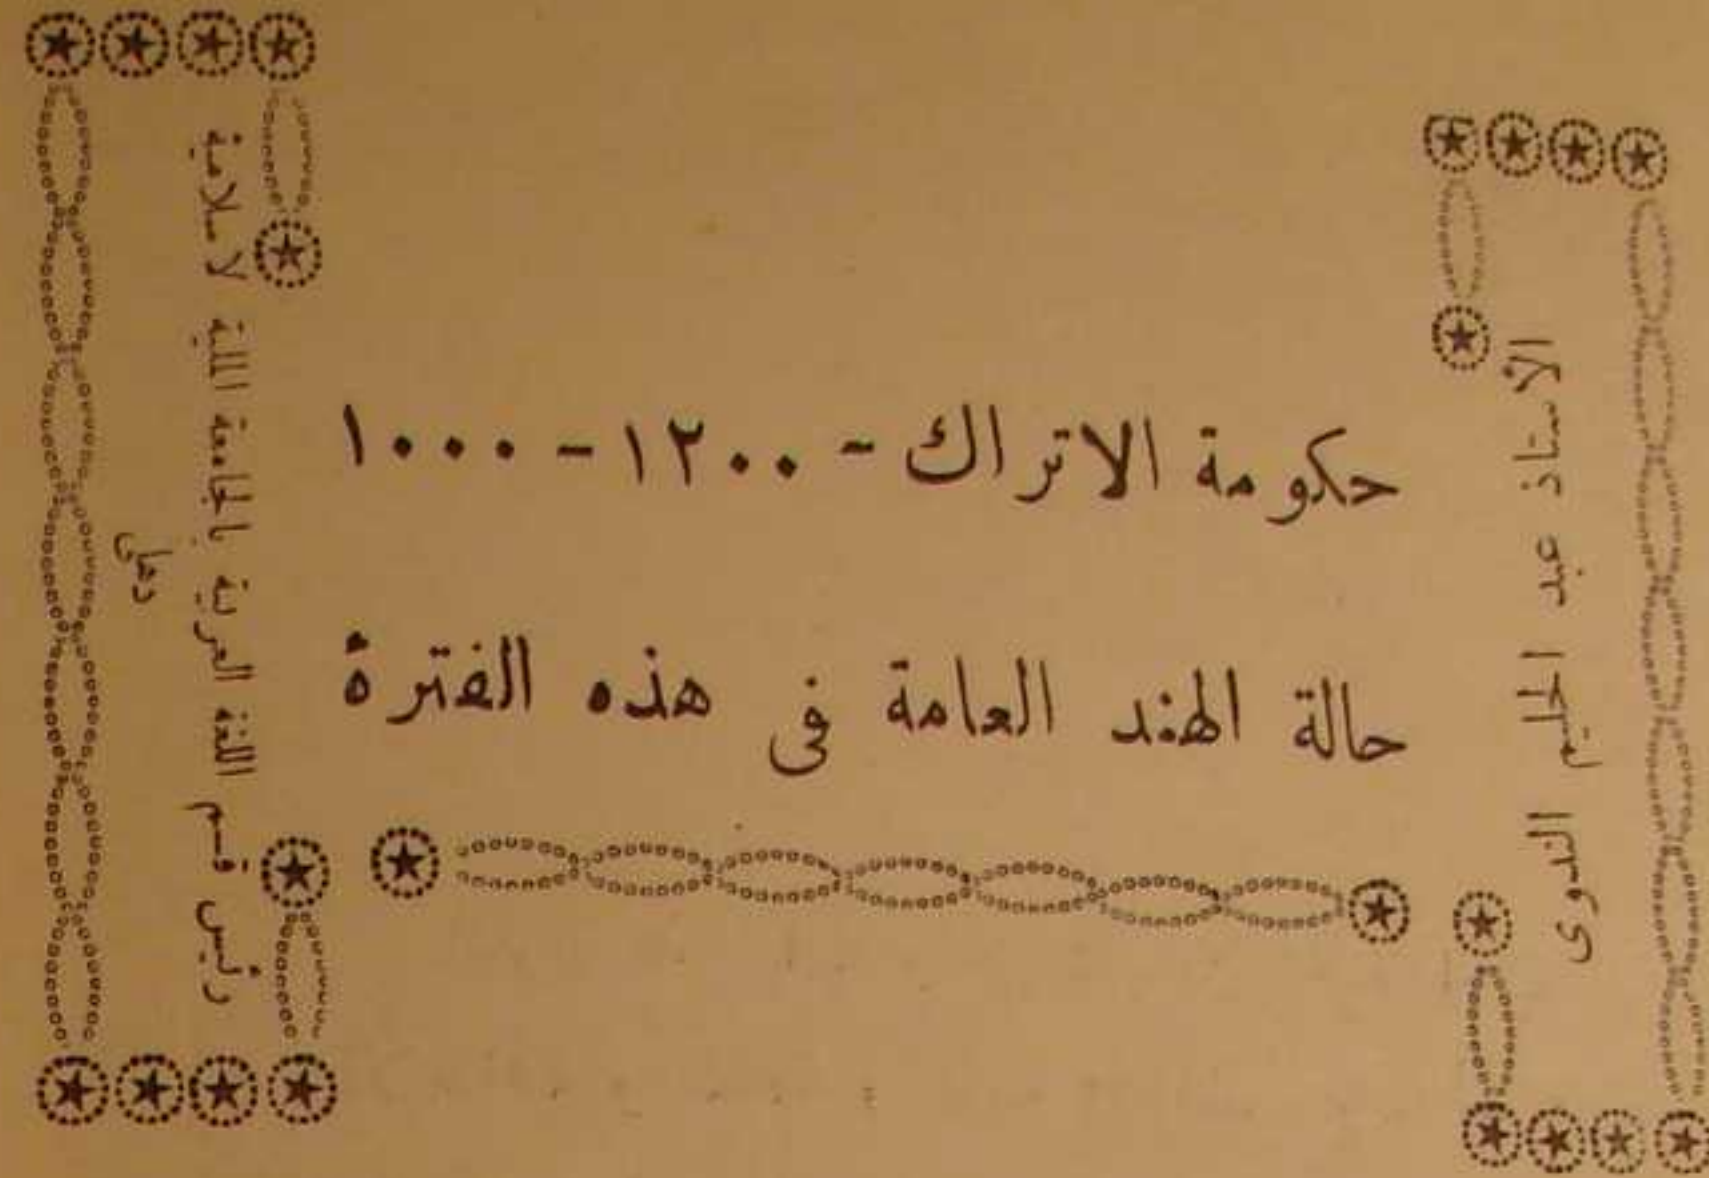 الأستاذ عبد الحليم الندوى
حكومة الاتراك - ١٢٠٠ - ١٠٠٠
حالة الهند العامة فى هذه الفترة
رئيس قسم اللغة العربية بالجامعة الملية لاسلامية
دهلى